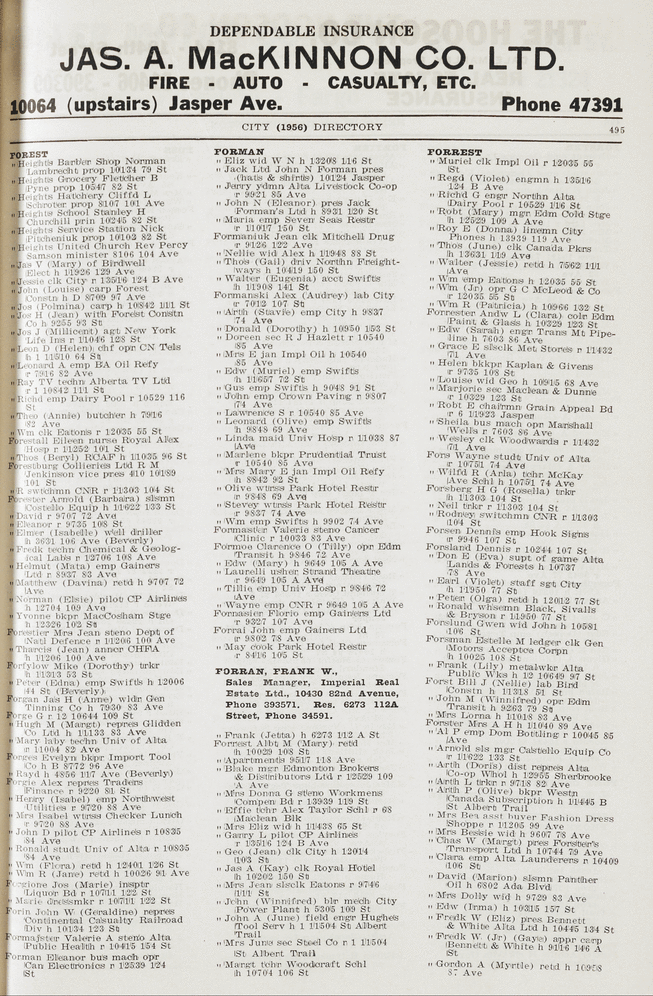 DEPENDABLE INSURANCE
JAS. A. MacKINNON CO. LTD.
FIRE - AUTO - CASUALTY, ETC.
10064 (upstairs) Jasper Ave. Phone 47391
CITY (1956) DIRECTORY 495
FOREST
" Heights Barber Shop Norman
Lambrecht prop 10134 79 St
" Heights Grocery Fletcher B
Pyne prop 10547 82 St
" Heights Hatchery Cliffd L
Schroter prop 8107 101 Ave
" Heights School Stanley H
Churchill prin 10245 82 St
" Heights Service Station Nick
Pitcheniuk prop 10103 82 St
" Heights United Church Rev Percy
Samson minister 8106 104 Ave
" Jas V (Mary) of Birdwell
Elect h 11926 129 Ave
" Jessie clk City r 13516 124 B Ave
" John (Louise) carp Forest
Constn h D 8709 97 Ave
" Jos (Polmina) carp h 10842 111 St
" Jos H (Jean) with Forest Constn
Co h 9255 93 St
" Jos J (Millicent) agt New York
Life Ins r 11046 128 St
" Leon D (Helen) chf opr CN Tels
h 111510 64 St
" Leonard A emp BA Oil Refy
r 7916 82 Ave
" Ray TV techn Alberta TV Ltd
r 1 10842 111 St
" Richd emp Dairy Pool r 10529 116
St
" Theo (Annie) butcher h 7916
82 Ave
" Wm clk Eatons r 12035 55 St
Forestall Eileen nurse Royal Alex
Hosp r 11252 101 St
" Thos (Beryl) RCAF h 11035 96 St
Forestburg Collieries Ltd R M
Jenkinson vice pres 410 10189
101 St
" R switchmn CNR r 11303 104 St
Forester Arnold (Barbara) slsmn
Costello Equip h 11622 133 St
" David r 9707 72 Ave
" Eleanor r 9735 108 St
" Elmer (Isabelle) well driller
h 3631 106 Ave (Beverly)
" Fredk techn Chemical & Geolog-
ical Labs r 12706 108 Ave
" Helmut (Mata) emp Gainers
Ltd r 8937 83 Ave
" Matthew (Davina) retd h 9707 72
Ave
" Norman (Elsie) pilot CP Airlines
h 12704 109 Ave
" Yvonne bkpr MacCosham Stge
h 12326 102 St
Forestier Mrs Jean steno Dept of
Natl Defence r 11206 100 Ave
" Tharcis (Jean) anncr CHFA
h 11206 100 Ave
Forfylow Mike (Dorothy) trkr
h 11313 53 St
" Peter (Edna) emp Swifts h 12006
44 St (Beverly)
Forgan Jas H (Anne) wldr Gen
Tinning Co h 7930 83 Ave
Forge G r 12 10644 109 St
" Hugh M (Margt) repres Glidden
Co Ltd h 11133 83 Ave
" Mary laby techn Univ of Alta
r 11004 82 Ave
Forges Evelyn bkpr Import Tool
Co h B 8772 96 Ave
" Rayd h 4856 117 Ave (Beverly)
Forgie Alex repres Traders
Finance r 9220 81 St
" Henry (Isabel) emp Northwest
Utilities r 9720 88 Ave
" Mrs Isabel wtrss Checker Lunch
r 9720 88 Ave
" John D pilot CP Airlines r 10835
84 Ave
" Ronald studt Univ of Alta r 10835
84 Ave
" Wm (Flora) retd h 12401 126 St
" Wm R (Jane) retd h 10026 91 Ave
Forgione Jos (Marie) insptr
Liquor Bd r 10711 122 St
" Marie dressmkr r 10711 122 St
Forin John W (Geraldine) repres
Continental Casualty Railroad
Div h 10134 123 St
Formajster Valerie A steno Alta
Public Health r 10415 154 St
Forman Eleanor bus mach opr
Can Electronics r 12539 124
St
FORMAN
" Eliz wid W N h 13208 116 St
" Jack Ltd John N Forman pres
(hats & shirts) 10124 Jasper
" Jerry ydmn Alta Livestock Co-op
r 9921 85 Ave
" John N (Eleanor) pres Jack
Forman's Ltd h 8931 120 St
" Maria emp Seven Seas Restr
r 11017 150 St
Formaniuk Jean clk Mitchell Drug
r 9126 122 Ave
" Nellie wid Alex h 11948 88 St
" Thos (Gail) driv Northn Freight-
ways h 10419 150 St
" Walter (Eugenia) acct Swifts
h 11908 141 St
Formanski Alex (Audrey) lab City
r 7012 107 St
" Arth (Stavie) emp City h 9837
74 Ave
" Donald (Dorothy) h 10950 153 St
" Doreen sec R J Hazlett r 10540
85 Ave
" Mrs E jan Impl Oil h 10540
85 Ave
" Edw (Muriel) emp Swifts
h 11657 72 St
" Gus emp Swifts h 9048 91 St
" John emp Crown Paving r 9807
74 Ave
" Lawrence S r 10540 85 Ave
" Leonard (Olive) emp Swifts
h 9848 69 Ave
" Linda maid Univ Hosp r 11038 87
Ave
" Marlene bkpr Prudential Trust
r 10540 85 Ave
" Mrs Mary E jan Impl Oil Refy
h 8842 92 St
" Olive wtrss Park Hotel Restr
r 9848 69 Ave
" Stevey wtrss Park Hotel Restr
9837 74 Ave
" Wm emp Swifts h 9902 74 Ave
Formaster Valerie steno Cancer
Clinic r 10033 83 Ave
Formoe Clarence O (Tilly) opr Edm
Transit h 9846 72 Ave
" Edw (Mary) h 9649 105 A Ave
" Laurelli usher Strand Theatre
r 9649 105 A Ave
" Tillie emp Univ Hosp r 9846 72
Ave
" Wayne emp CNR r 9649 105 A Ave
Fornasier Florio emp Gainers Ltd
r 9327 107 Ave
Forrai John emp Gainers Ltd
r 9802 78 Ave
" May cook Park Hotel Restr
r 8416 105 St
FORRAN, FRANK W.,
Sales Manager, Imperial Real
Estate Ltd., 10430 82nd Avenue,
Phone 393571. Res. 6273 112A
Street, Phone 34591.
" Frank (Jetta) h 6273 112 A St
Forrest Albt M (Mary) retd
h 10029 108 St
" Apartments 9517 118 Ave
" Blake mgr Edmonton Brokers
& Distributors Ltd r 12529 109
A Ave
" Mrs Donna G steno Workmens
Compen Bd r 13939 119 St
" Effie tchr Alex Taylor Schl r 68
Maclean Blk
" Mrs Eliz wid h 11438 65 St
" Garry L pilot CP Airlines
r 13516 124 B Ave
" Geo (Jean) clk City h 12014
103 St
" Jas A (Kay) clk Royal Hotel
h 10202 150 St
" Mrs Jean slsclk Eatons r 9746
111 St
" John (Winnifred) blr mech City
Power Plant h 5305 109 St
" John A (June) field engr Hughes
Tool Serv h 1 11504 St Albert
Trail
" Mrs June sec Steel Co r 1 11504
St Albert Trail
" Margt tchr Woodcraft Schl
h 10704 106 St
FORREST
" Muriel clk Impl Oil r 12035 55
St
" Regd (Violet) engmn h 13516
124 B Ave
" Richd G engr Northn Alta
Dairy Pool r 10529 116 St
" Robt (Mary) mgr Edm Cold Stge
h 12529 109 A Ave
" Roy E (Donna) linemn City
Phones h 13939 119 Ave
" Thos (June) clk Canada Pkrs
h 13631 119 Ave
" Walter (Jessie) retd h 7562 111
Ave
" Wm emp Eatons h 12035 55 St
" Wm (Jr) opr G McLeod & Co
r 12035 55 St
" Wm R (Patricia) h 10966 132 St
Forrester Andw L (Clara) colr Edm
Paint & Glass h 10329 123 St
" Edw (Sarah) engr Trans Mt Pipe-
line h 7603 86 Ave
" Grace E slsclk Met Stores r 11432
71 Ave
" Helen bkkpr Kaplan & Givens
r 9735 108 St
" Louise wid Geo h 10915 68 Ave
" Marjorie sec Maclean & Dunne
r 10329 123 St
" Robt E chairmn Grain Appeal Bd
r 6 11923 Jasper
" Sheila bus mach opr Marshall
Wells r 7603 86 Ave
" Wesley clk Woodwards r 11432
71 Ave
Fors Wayne studt Univ of Alta
r 10751 74 Ave
" Wilfd R (Arla) tchr McKay
Ave Schl h 10751 74 Ave
Forsberg H G (Rosella) trkr
h 11303 104 St
" Neil trkr r 11303 104 St
" Rodney switchmn CNR r 11303
104 St
Forsen Dennis emp Hook Signs
r 9946 107 St
Forsland Dennis r 10244 107 St
" Don E (Eva) supt of game Alta
Lands & Forests h 10737
78 Ave
" Earl (Violet) staff sgt City
h 11950 77 St
" Peter (Olga) retd h 12012 77 St
" Ronald whsemn Black, Sivalls
& Bryson r 11950 77 St
Forslund Gwen wid John h 10581
106 St
Forsman Estelle M ledger clk Gen
Motors Acceptce Corpn
h 10025 108 St
" Frank (Lily) metalwkr Alta
Public Wks h 12 10649 97 St
Forst Bill J (Nellie) lab Bird
Constn h 11318 51 St
" John M (Winnifred) opr Edm
Transit h 9263 79 St
" Mrs Lorna h 11018 83 Ave
Forster Mrs A H h 11040 89 Ave
" Al P emp Dom Bottling r 10045 85
Ave
" Arnold sls mgr Castello Equip Co
r 11622 133 St
" Arth (Doris) dist repres Alta
Co-op Whol h 12955 Sherbrooke
" Arth L trkr r 9718 82 Ave
" Arth P (Olive) bkpr Westn
Canada Subscription h 11445 B
St Albert Trail
" Mrs Bea asst buyer Fashion Dress
Shoppe r 11205 99 Ave
" Mrs Bessie wid h 9607 78 Ave
" Chas W (Margt) pres Forster's
Transport Ltd h 10744 79 Ave
" Clara emp Alta Launderers r 10409
106 St
" David (Marion) slsmn Panther
Oil h 6802 Ada Blvd
" Mrs Dolly wid h 9729 83 Ave
" Edw (Irma) h 10315 157 St
" Fredk W (Eliz) pres Bennett
& White Alta Ltd h 10445 134 St
" Fredk W (Jr) (Gaye) appr carp
Bennett & White h 9116 146 A
St
" Gordon A (Myrtle) retd h 10958
87 Ave